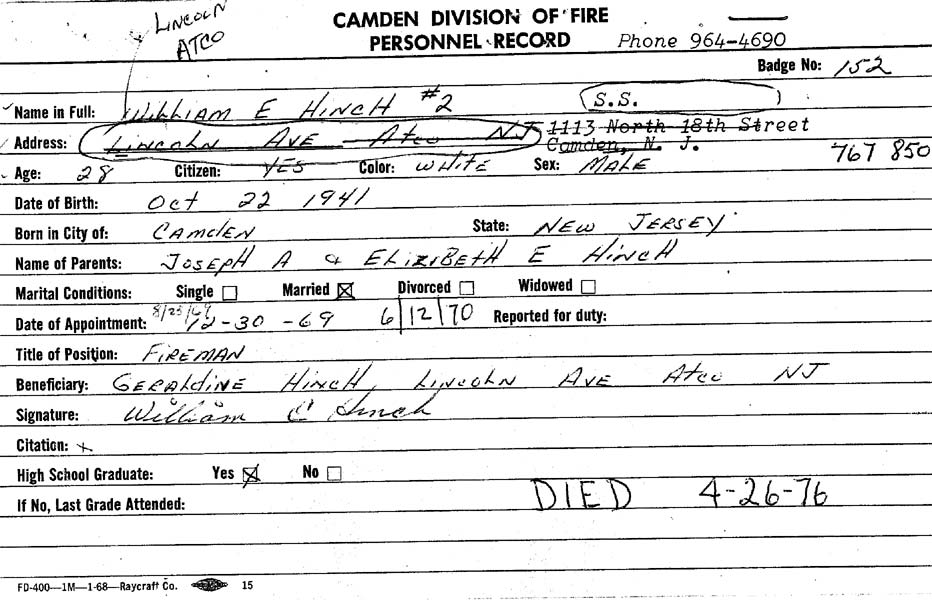 LINCOLN
ATCO
CAMDEN DIVISION OF FIRE
PERSONNEL RECORD Phone 964-4690
Badge No: 152
Name in Full: WILLIAM E HINCH #2 (S.S. )
Address: LINCOLN AVE Atco NJ 1113 North 18th Street
Camden, N. J. 767 850
Age: 28 Citizen: YES Color: WHITE Sex: MALE
Date of Birth: Oct 22 1941
Born in City of: CAMDEN State: NEW JERSEY
Name of Parents: JOSEPH A & ELIZIBETH E HINCH
Marital Conditions: Single ☐ Married ☒ Divorced ☐ Widowed ☐
Date of Appointment: 8/23/69 12-30-69 6/12/70 Reported for duty:
Title of Position: FIREMAN
Beneficiary: GERALDINE HINCH, LINCOLN AVE Atco NJ
Signature: William E Hinch
Citation: x
High School Graduate: Yes ☒ No ☐
If No, Last Grade Attended: DIED 4-26-76
FD-400—1M—1-68—Raycraft Co. 15